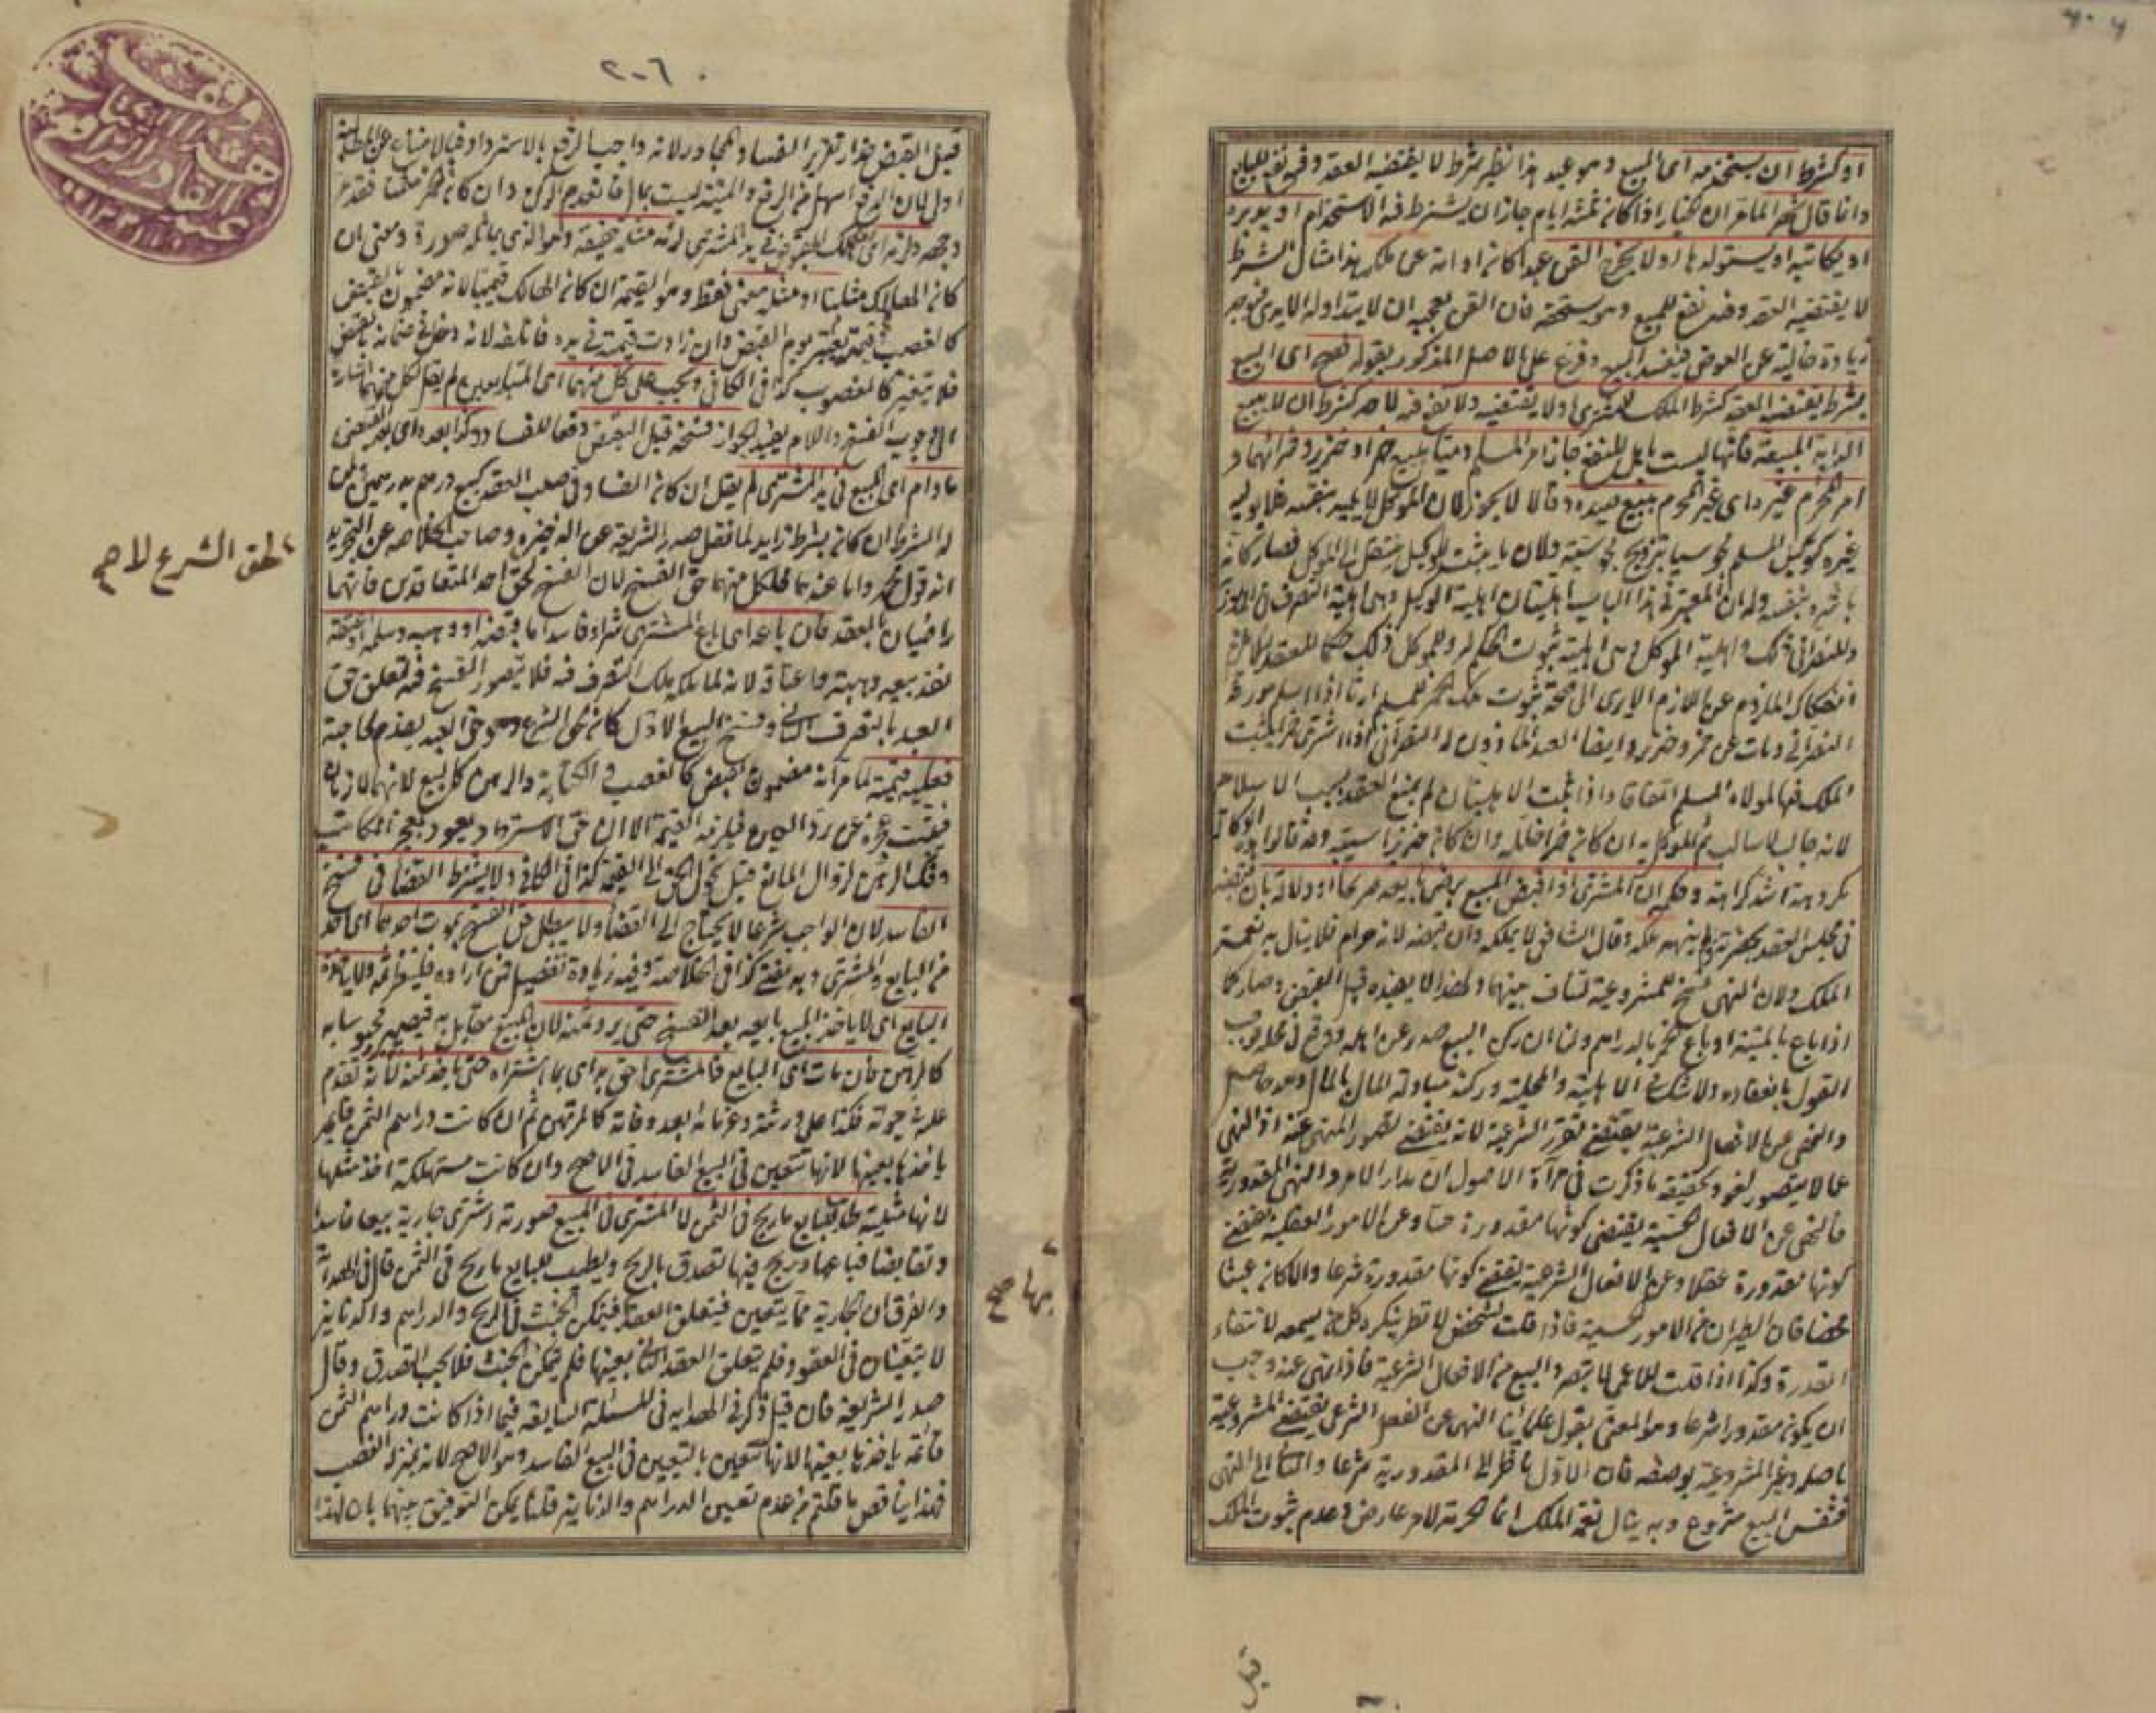 او كشرط ان يستخدمه اى المبيع وهو عبد هذا نظير شرط لا يقتضيه العقد وفيه نفع للبايع
وانما قال شهرا لما مر ان الخيار اذا كان ثلثة ايام جاز ان يشترط فيه الاستخدام او يدبره
او يكاتبه او يستولدها او لا يخرج القن عبدا كان او امة عن ملكه هذا مثال لشرط
لا يقتضيه العقد وفيه نفع للمبيع وهو يستحقه فان القن يعجبه ان لا يتداوله الايدى فيوجد
زيادة خالية عن العوض فيفسد البيع وفرع على الاصل المذكور بقوله فصح اى البيع
بشرط يقتضيه العقد كشرط الملك للمشترى او لا يقتضيه ولا نفع فيه لاحد كشرط ان لا يبيع
الدابة المبيعة فانها ليست باهل للنفع جاز امر المسلم ذميا ببيع خمر او خنزير وشرائهما و
امر المحرم غيره اى غير المحرم ببيع صيده وقالا لا يجوز لان الموكل لا يليه بنفسه فلا يوليه
غيره كتوكيل المسلم مجوسيا بتزويج مجوسية ولان ما يثبت للوكيل ينتقل الى الموكل فصار كانه
باشره بنفسه وله ان المعتبر فى هذا الباب اهليتان اهلية الوكيل وهى اهلية التصرف فى المأمور
وللنصرانى ذلك واهلية الموكل وهى اهلية ثبوت الحكم له وللموكل ذلك حكما للعقد لئلا يلزم
انفكاك الملزوم عن اللازم الا يرى الى صحة ثبوت ملك الخمر للمسلم ارثا اذا اسلم مورثه
النصرانى ومات عن خمر وخنزير وايضا العبد المأذون له النصرانى اذا اشترى خمرا يثبت
الملك فيها لمولاه المسلم اتفاقا واذا ثبت الاهليتان لم يمتنع العقد بسبب الاسلام
لانه جالب لا سالب ثم الموكل به ان كان خمرا خللها وان كان خنزيرا سيبه وقد قالوا هذه الوكالة
مكروهة اشد كراهة وحكمه ان المشترى اذا قبض المبيع برضى بايعه صريحا او دلالة بان قبضه
فى مجلس العقد بحضرته ولم ينهه ملكه وقال الشافعى لا يملكه وان قبضه لانه حرام فلا ينال به نعمة
الملك ولان النهى نسخ للمشروعية لتناف بينهما ولهذا لا يفيده قبل القبض وصار كما
اذا باع بالميتة او باع الخمر بالدراهم ولنا ان ركن البيع صدر عن اهله ووقع فى محله فوجب
القول بانعقاده ولا شك فى الاهلية والمحلية وركنه مبادلة المال بالمال وهو حاصل
والنهى عن الافعال الشرعية يقتضى تقرر الشرعية لانه يقتضى تصور المنهى عنه اذ النهى
عما لا يتصور لغو وتحقيقه ما ذكرت فى مرآة الاصول ان مدار الامر والنهى المقدورية
فالنهى عن الافعال الحسية يقتضى كونها مقدورة حسا وعن الامور العقلية يقتضى
كونها مقدورة عقلا وعن الافعال الشرعية يقتضى كونها مقدورة شرعا والا كان عبثا
محضا فان الطيران من الامور الحسية فاذا قلت لشخص لا تطر ينكر كل من يسمعه لانتفاء
القدرة وكذا اذا قلت للاعمى لا تبصر والبيع من الافعال الشرعية فاذا نهى عنه وجب
ان يكون مقدورا شرعا وهو المعنى بقول علمائنا النهى عن الفعل الشرعى يقتضى المشروعية
باصله وغير المشروعية بوصفه فان الاول ناظر الى المقدورية شرعا والثانى الى النهى
فنفس البيع مشروع وبه ينال نعمة الملك انما الحرمة لامر عارض وعدم ثبوت الملك
قبل
٢٠٦
قبل القبض حذرا من تقرير الفساد المجاور لانه واجب الرفع بالاسترداد فبالامتناع عن المطالبة
اولى لان الدفع اسهل من الرفع والميتة ليست بمال فانعدم الركن وان كان الخمر مثمنا فقد مر
وجهه ولزمه اى مثله حقيقة وهو الذى يماثله صورة ومعنى ان
كان الهالك مثليا او مثله معنى فقط وهو القيمة ان كان الهالك قيميا لانه مضمون بالقبض
كالغصب وقيمته تعتبر يوم القبض وان زادت قيمته فى يده فاتلفه لانه دخل فى ضمانه بالقبض
فلا يتغير كالمغصوب كذا فى الكافى ويجب على كل منهما اى المتبايعين لم يقل لكل منهما اشارة
الى وجوب الفسخ واللام يفيد الجواز فسخه قبل القبض دفعا للفساد وكذا بعده اى بعد القبض
ما دام اى المبيع فى يد المشترى لم يقل ان كان الفساد فى صلب العقد كبيع درهم بدرهمين ولمن
له الشرط ان كان بشرط زايد لما نقل صدر الشريعة عن الذخيرة وصاحب الخلاصة عن التجريد
انه قول محمد واما عندهما فلكل منهما حق الفسخ لان الفسخ لحق الشرع لا لحق احد المتعاقدين فانهما
راضيان بالعقد فان باعه اى باع المشترى شراء فاسدا ما قبضه او وهبه وسلمه او اعتقه
نفذ بيعه وهبته واعتاقه لانه لما ملكه ملك التصرف فيه فلا يتصور الفسخ فيه لتعلق حق
العبد بالتصرف الثانى وفسخ البيع الاول كان لحق الشرع وحق العبد يقدم لحاجته
فعليه قيمته لما مر انه مضمون بالقبض كالغصب والكتابة والرهن كالبيع لانهما لازمان
فيثبت عجزه عن رد العين فيلزمه القيمة الا ان حق الاسترداد يعود بعجز المكاتب
وفك الرهن لزوال المانع قبل تحول الحق الى القيمة كذا فى الكافى ولا يشترط القضاء فى فسخ
الفاسد لان الواجب شرعا لا يحتاج الى القضاء ولا يبطل حق الفسخ بموت احدهما اى احد
من البايع والمشترى وبه يفتى كذا فى الخلاصة وفيه زيادة تفصيل فمن اراده فلينظر ثمه ولا ياخذه
البايع اى لا ياخذ المبيع بايعه بعد الفسخ حتى يرد ثمنه لان المبيع مقابل به فيصير محبوسا به
كالرهن فان مات اى البايع فالمشترى احق به اى بما اشتراه حتى ياخذ ثمنه لانه تقدم
عليه حيوته فكذا على ورثته وغرمائه بعد وفاته كالمرتهن ثم ان كانت دراهم الثمن قائمة
ياخذها بعينها لانها تتعين فى البيع الفاسد فى الاصح وان كانت مستهلكة اخذ مثلها
لانها مثلية طاب للبايع ما ربح فى الثمن لا للمشترى فى المبيع صورته اشترى جارية بيعا فاسدا
وتقابضا فباعها وربح فيها تصدق بالربح ويطيب للبايع ما ربح فى الثمن قال فى الهداية
والفرق ان الجارية مما يتعين فيتعلق العقد بها فيتمكن الخبث فى الربح والدراهم والدنانير
لا يتعينان فى العقود فلم يتعلق العقد الثانى بعينها فلم يتمكن الخبث فلا يجب التصدق وقال
صدر الشريعة فان قيل ذكر فى الهداية فى المسئلة السابقة فيما اذا كانت دراهم الثمن
قائمة ياخذها بعينها لانها تتعين بالتعيين فى البيع الفاسد وهو الاصح لانه بمنزلة الغصب
فهذا يناقض ما قلتم من عدم تعين الدراهم والدنانير قلنا يمكن التوفيق بينهما بان لهذا
لحق الشرع لا صح
بها صح